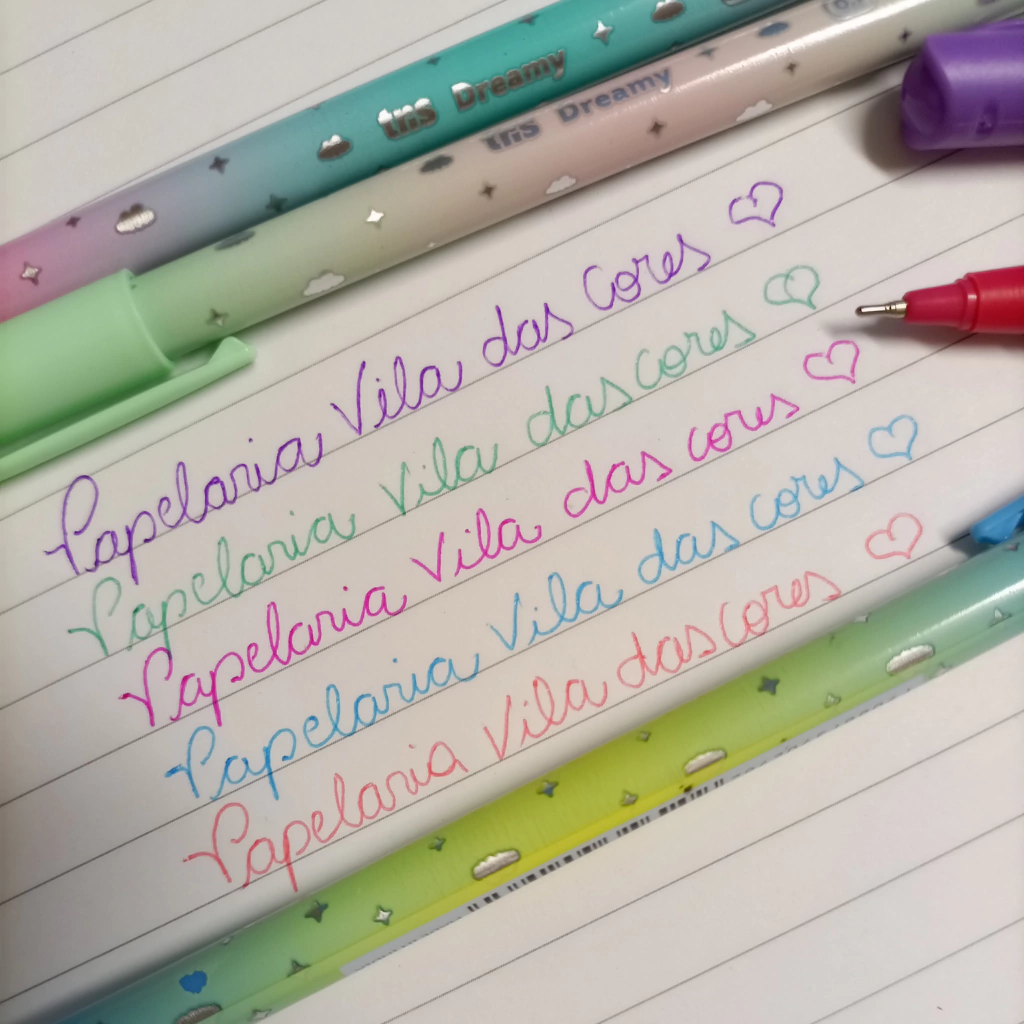 tris Dreamy
tris Dreamy
Papelaria Vila das Cores ♡
Papelaria Vila das cores ♡
Papelaria Vila das cores ♡
Papelaria Vila das cores ♡
Papelaria Vila das cores ♡